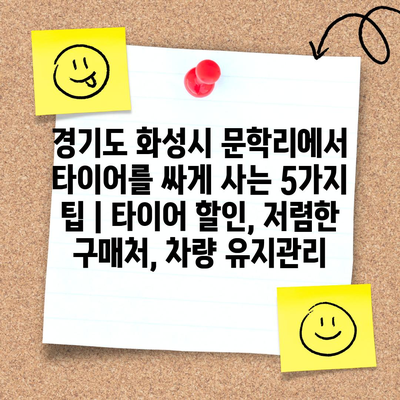 경기도 화성시 문학리에서
타이어를 싸게 사는 5가지
팁 | 타이어 할인, 저렴한
구매처, 차량 유지관리